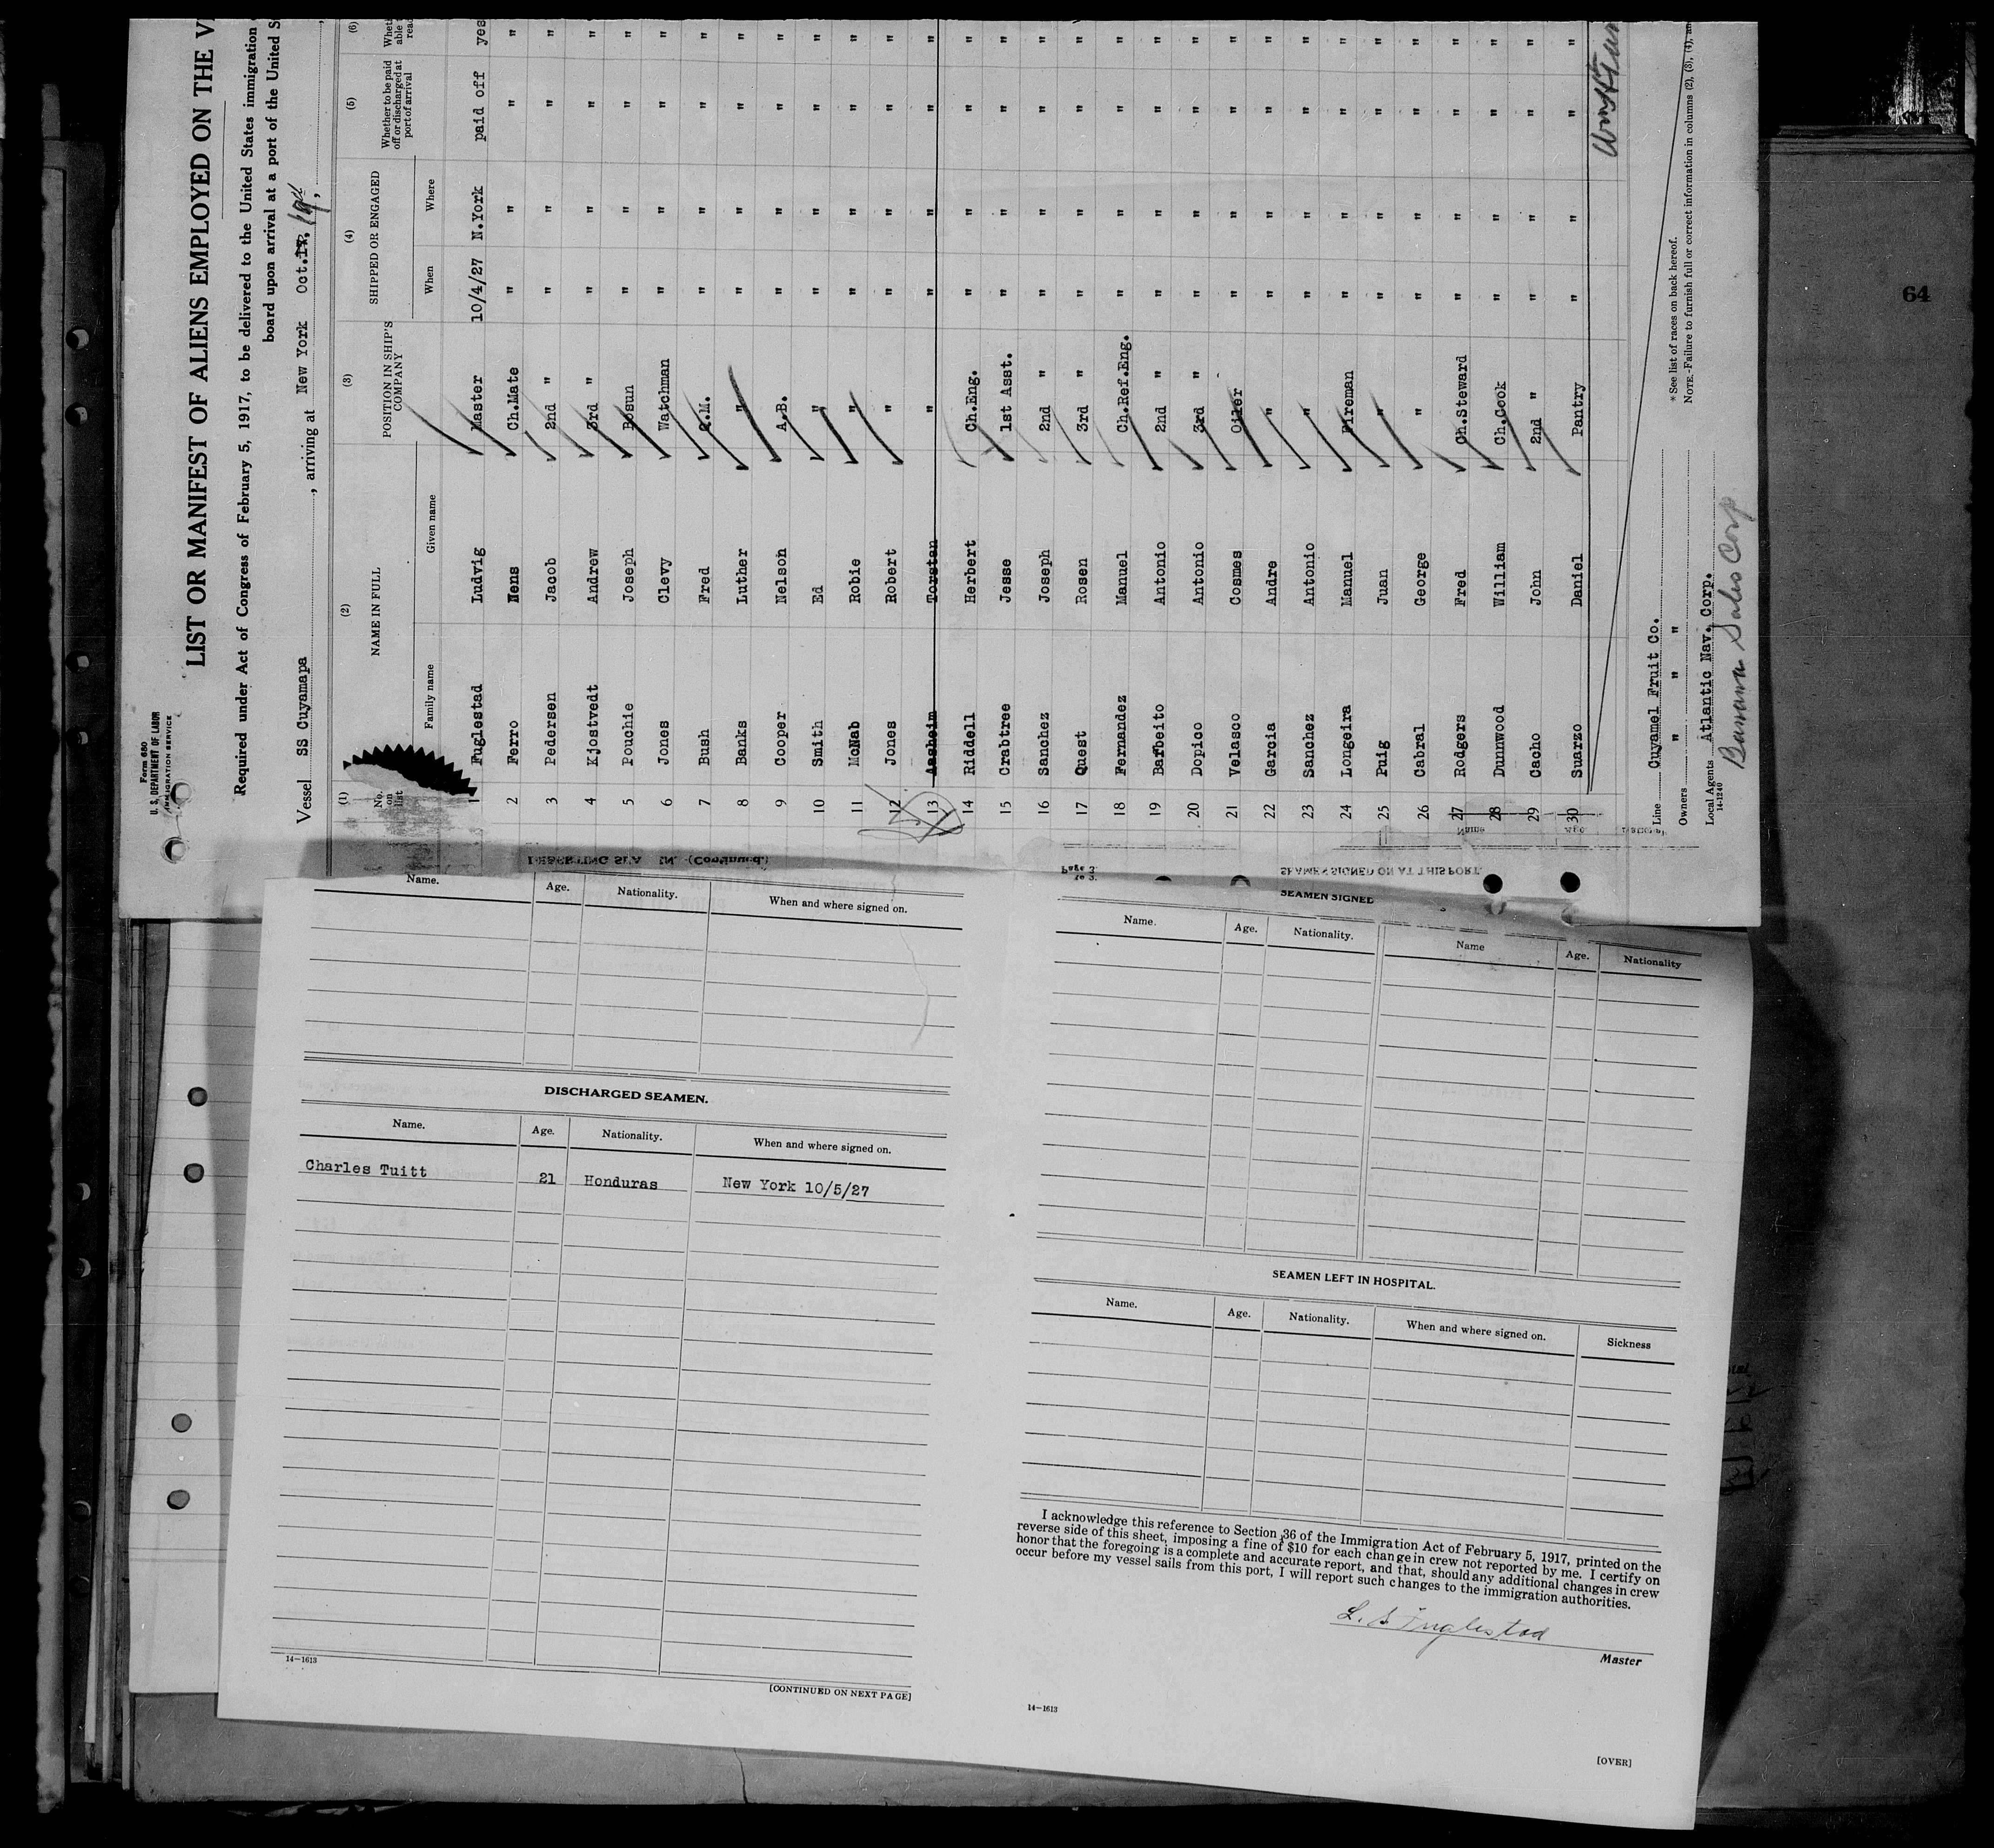 Form 680
U. S. DEPARTMENT OF LABOR
IMMIGRATION SERVICE
LIST OR MANIFEST OF ALIENS EMPLOYED ON THE V
Required under Act of Congress of February 5, 1917, to be delivered to the United States immigration
board upon arrival at a port of the United S
Vessel SS Cuyamapa, arriving at New York Oct. 19th,
(1) (2) (3) (4) (5) (6)
No. on list NAME IN FULL POSITION IN SHIP'S COMPANY SHIPPED OR ENGAGED Whether to be paid off or discharged at port of arrival
Family name Given name When Where
1 Fuglestad Ludvig Master 10/4/27 N.York paid off yes
2 Ferro Mens Ch.Mate " " " "
3 Pedersen Jacob 2nd " " " " "
4 Kjostvedt Andrew 3rd " " " " "
5 Pouchie Joseph Bosun " " " "
6 Jones Clevy Watchman " " " "
7 Bush Fred Q.M. " " " "
8 Banks Luther " " " " "
9 Cooper Nelson A.B. " " " "
10 Smith Ed " " " " "
11 McNab Robie " " " " "
12 Jones Robert " " " " "
13 Aasheim Torsten " " " " "
14 Riddell Herbert Ch.Eng. " " " "
15 Crabtree Jesse 1st Asst. " " " "
16 Sanchez Joseph 2nd " " " " "
17 Quest Rosen 3rd " " " " "
18 Fernandez Manuel Ch.Ref.Eng. " " " "
19 Barbeito Antonio 2nd " " " " "
20 Dopico Antonio 3rd " " " " "
21 Velasco Cosmes Oiler " " " "
22 Garcia Andre " " " " "
23 Sanchez Antonio " " " " "
24 Longeira Manuel Fireman " " " "
25 Puig Juan " " " " "
26 Cabral George " " " " "
27 Rodgers Fred Ch.Steward " " " "
28 Dunwood William Ch.Cook " " " "
29 Cacho John 2nd " " " " "
30 Suarzo Daniel Pantry " " " "
Line Cuyamel Fruit Co.
Owners " " "
Local Agents Atlantic Nav. Corp.
Banana Sales Corp
14-1240
* See list of races on back hereof.
NOTE.-Failure to furnish full or correct information in columns (2), (3), (4), an
64
DESERTING SEAMEN. (Continued.)
Name. Age. Nationality. When and where signed on.
DISCHARGED SEAMEN.
Name. Age. Nationality. When and where signed on.
Charles Tuitt 21 Honduras New York 10/5/27
14-1613
[CONTINUED ON NEXT PAGE]
Page 3.
SEAMEN SIGNED ON AT THIS PORT.
SEAMEN SIGNED
Name. Age. Nationality. Name Age. Nationality
SEAMEN LEFT IN HOSPITAL.
Name. Age. Nationality. When and where signed on. Sickness
I acknowledge this reference to Section 36 of the Immigration Act of February 5, 1917, printed on the
reverse side of this sheet, imposing a fine of $10 for each change in crew not reported by me. I certify on
honor that the foregoing is a complete and accurate report, and that, should any additional changes in crew
occur before my vessel sails from this port, I will report such changes to the immigration authorities.
L. S Fuglestad
Master
14-1613
[OVER]